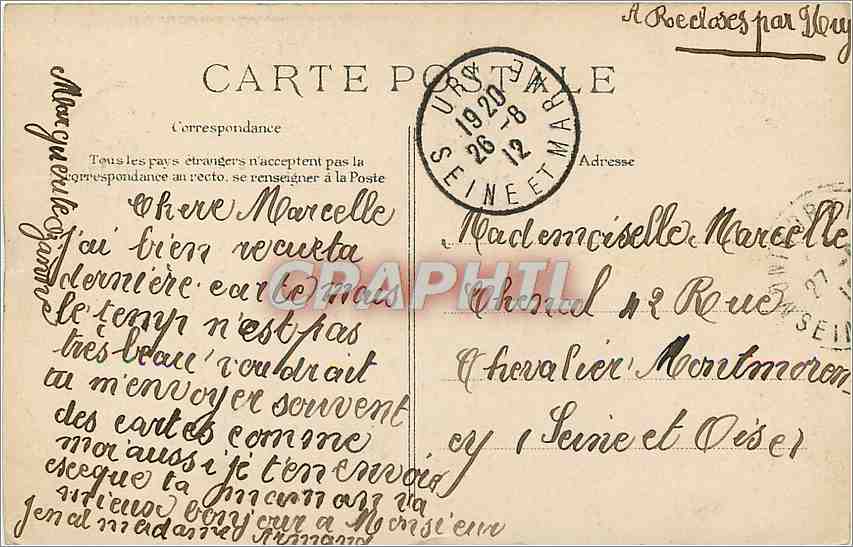 A Recloses par Ury
CARTE POSTALE
Correspondance
Tous les pays étrangers n'acceptent pas la
correspondance au recto, se renseigner à la Poste
Adresse
URY
SEINE ET MARNE
1920
26 -8
12
27
SEINE
CPAPHIL
Chere Marcelle
j'ai bien recu ta
dernière carte mais
le temp n'est pas
très beau voudrait
tu m'envoyer souvent
des cartes comme
moi aussi je t'en envoie
esceque ta maman va
mieux bonjour a Monsieur
madame Armand
Marguerite
Mademoiselle Marcelle
Chenal 42 Rue
Chevalier Montmoren
cy (Seine et Oise)